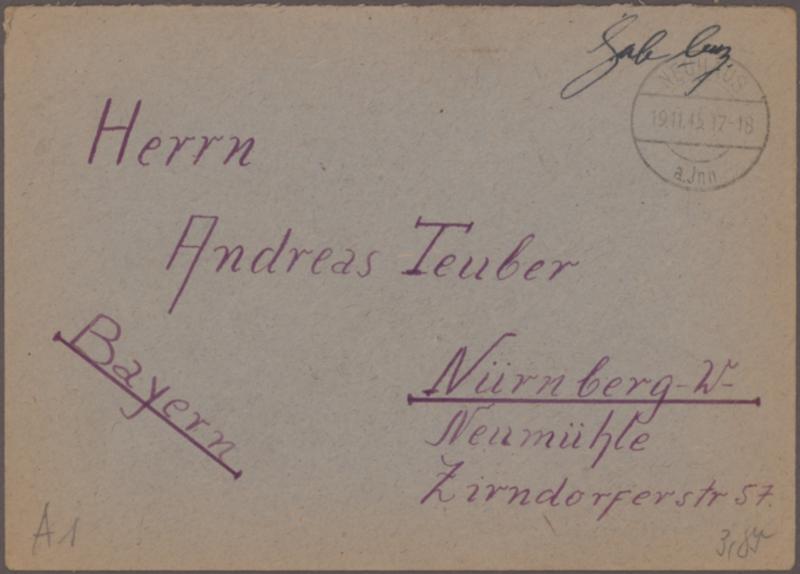 NEUHAUS
19.11.45.17-18
a. Jnn
Herrn
Andreas Teuber
Bayern
Nürnberg-W-
Neumühle
Zirndorferstr 57.
A1